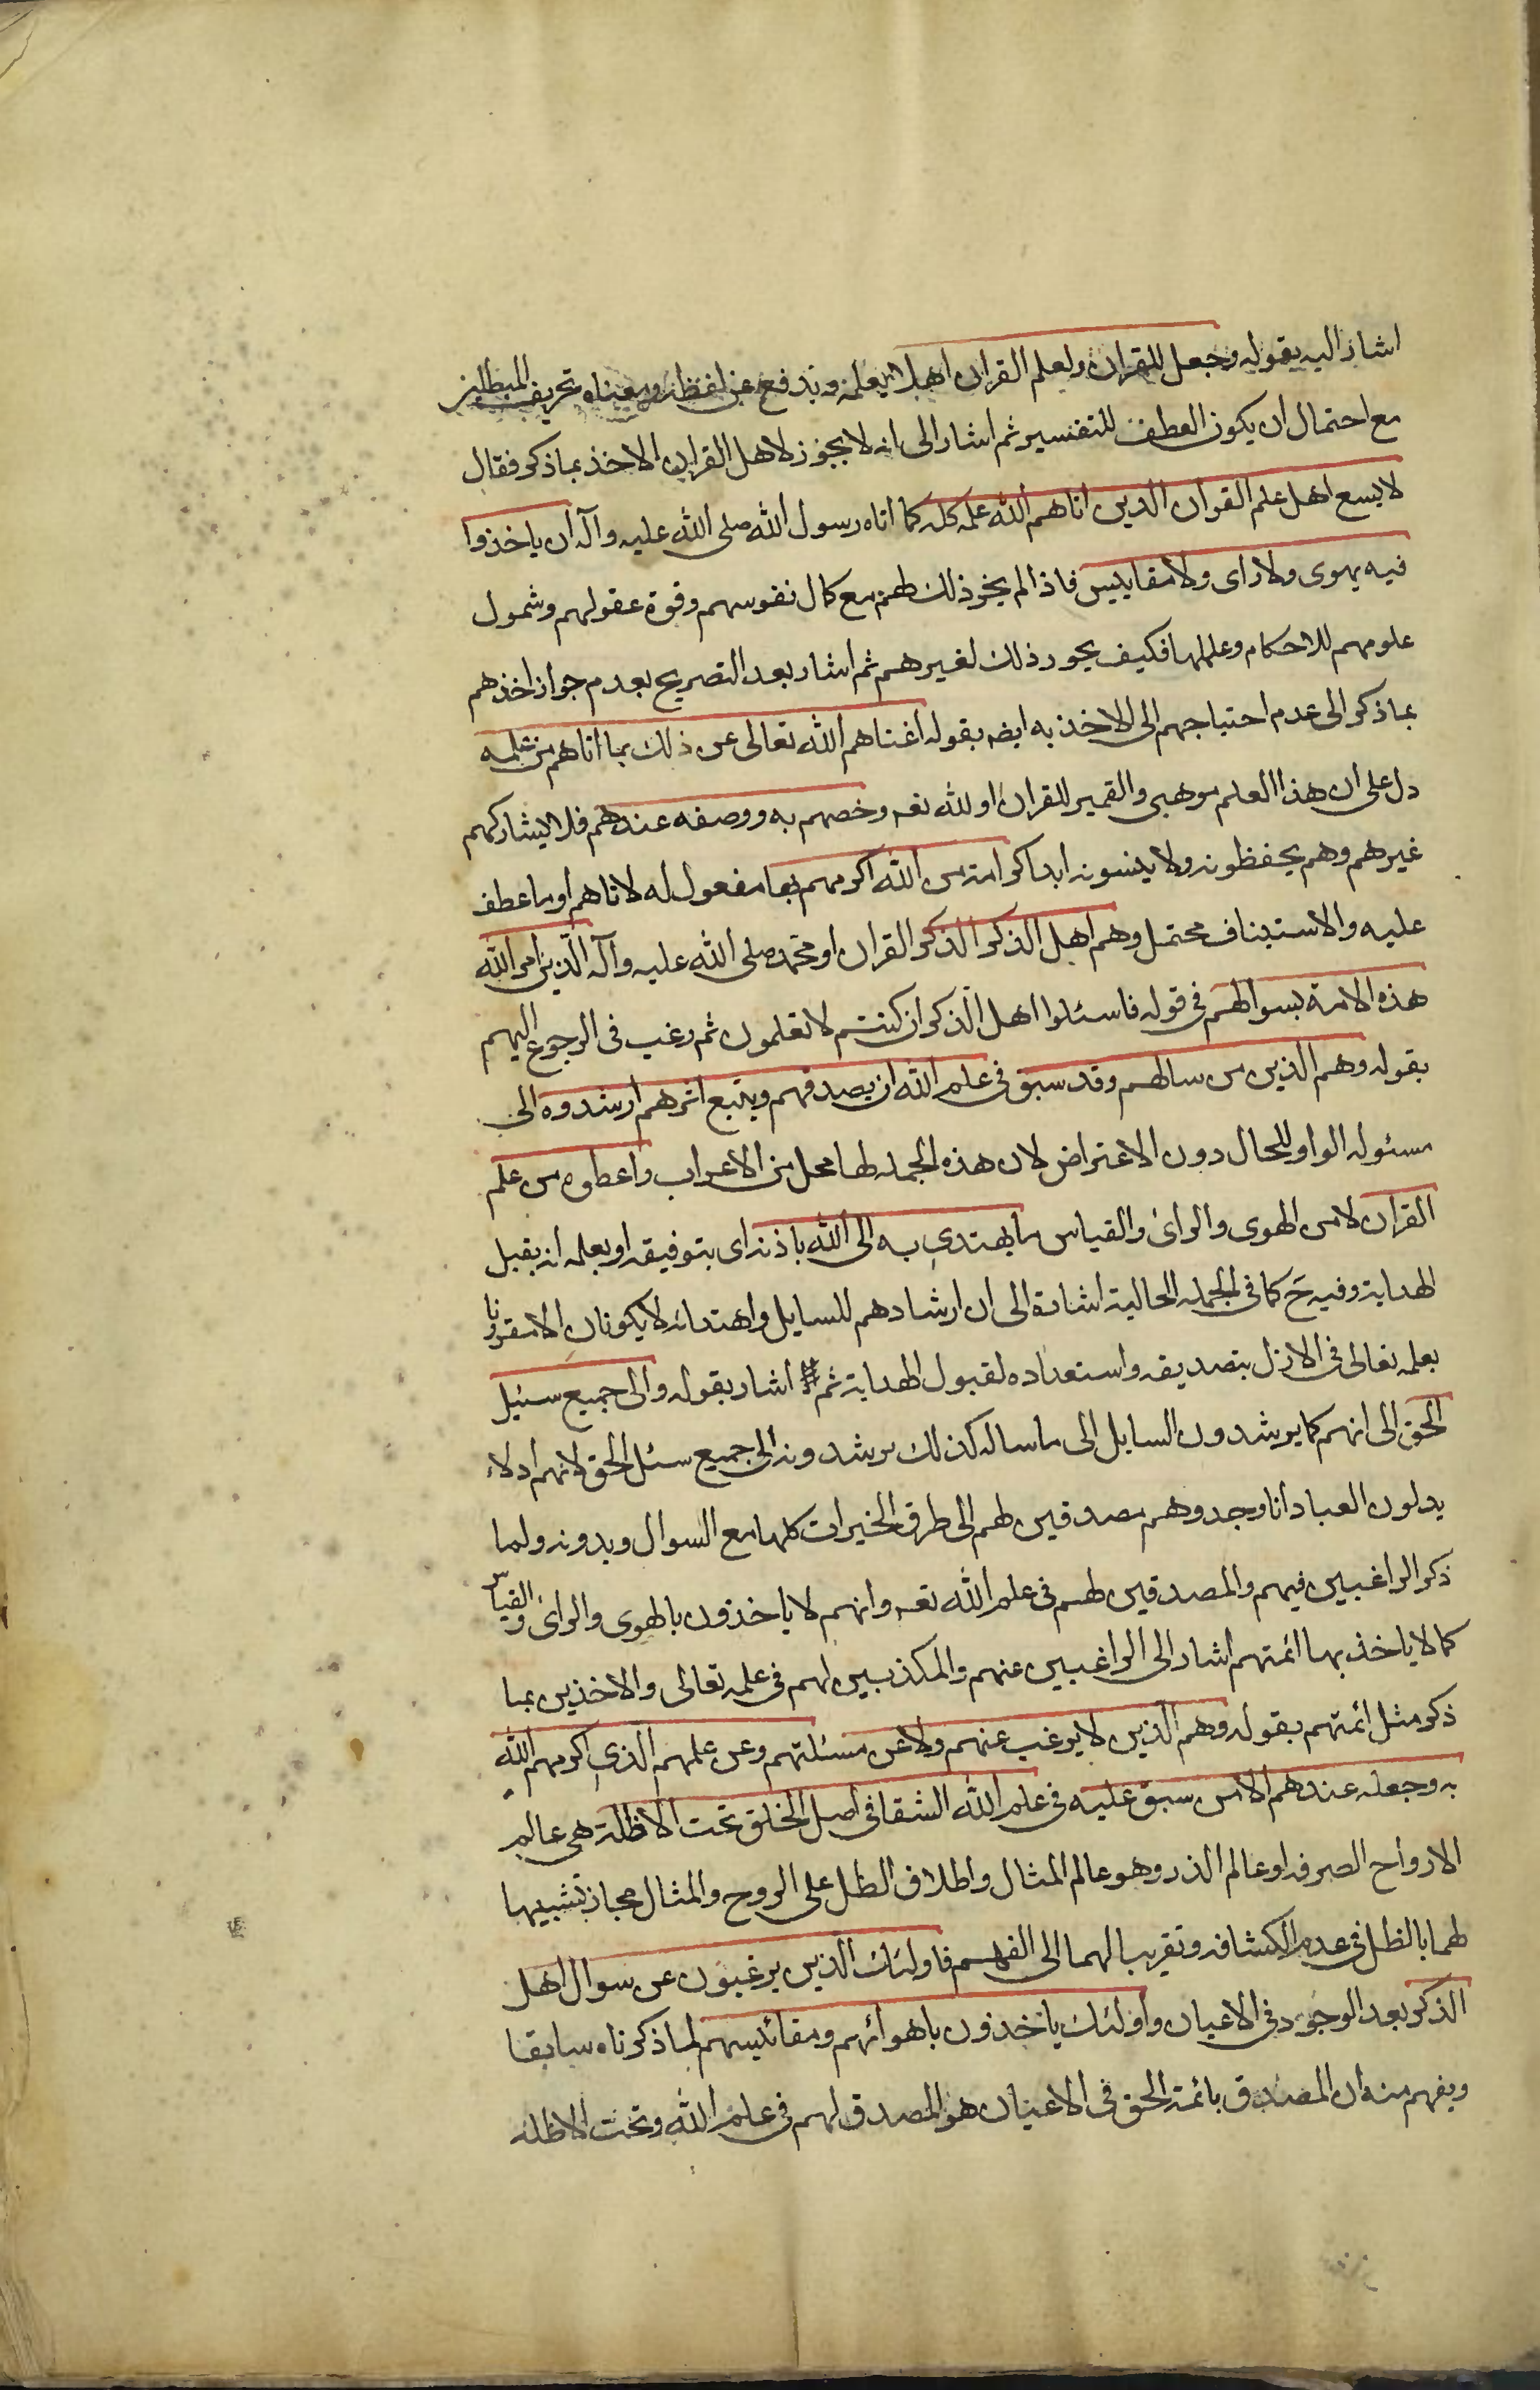 اشار اليه بقوله وجعل للقران ولعلم القران اهلا يعلمونه وتدفع عن لفظه ومعناه تحريف المبطلين
مع احتمال ان يكون العطف للتفسير ثم اشار الى انه لا يجوز لاهل القران الاخذ بما ذكر فقال
لا يسع اهل علم القران الذين اتاهم الله علمه كله كما اتاه رسول الله صلى الله عليه وآله ان ياخذوا
فيه بهوى ولا راى ولا مقاييس فاذا لم يجز ذلك لهم مع كمال نفوسهم وقوة عقولهم وشمول
علومهم للاحكام وعللها فكيف يجوز ذلك لغيرهم ثم اشار بعد التصريح بعدم جواز اخذهم
بما ذكر الى عدم احتياجهم الى الاخذ به ايضه بقوله اغناهم الله تعالى عن ذلك بما اتاهم من علمه
دل على ان هذا العلم موهبى والضمير للقران او لله تعه وخصهم به ووصفه عندهم فلا يشاركهم
غيرهم وهم يحفظونه ولا ينسونه ابدا كرامة من الله اكرمهم بها مفعول له لاتاهم او ما عطف
عليه والاستيناف محتمل وهم اهل الذكر الذكر القران او محمد صلى الله عليه وآله الذين امر الله
هذه الامة بسوالهم فى قوله فاسئلوا اهل الذكر ان كنتم لا تعلمون ثم رغب فى الرجوع اليهم
بقوله وهم الذين من سالهم وقد سبق فى علم الله ان يصدقهم ويتبع اثرهم ارشدوه الى
مسئوله الواو للحال دون الاعتراض لان هذه الجمله لها محل من الاعراب واعطوه من علم
القران لا من الهوى والراى والقياس ما يهتدى به الى الله باذنه اى بتوفيقه او بعلمه انه يقبل
الهداية وفيه ح كما فى الجمله الحالية اشارة الى ان ارشادهم للسايل واهتدائه لا يكونان الا مقرونا
بعلمه تعالى فى الازل بتصديقه واستعداده لقبول الهداية ثم # اشار بقوله والى جميع سبيل
الحق الى انهم كما يرشدون السايل الى ما ساله كذلك يرشدونه الى جميع سبل الحق لانهم ادلاء
يدلون العباد اذا وجدوهم مصدقين لهم الى طرق الخيرات كلها مع السوال وبدونه ولما
ذكر الراغبين فيهم والمصدقين لهم فى علم الله تعه وانهم لا ياخذون بالهوى والراى والقياس
كما لا ياخذ بها ائمتهم اشار الى الراغبين عنهم والمكذبين لهم فى علمه تعالى والاخذين بما
ذكر مثل ائمتهم بقوله وهم الذين لا يرغب عنهم ولا عن مسئلتهم وعن علمهم الذى اكرمهم الله
به وجعله عندهم الا من سبق عليه فى علم الله الشقا فى اصل الخلق تحت الاظلة هى عالم
الارواح الصرفه او عالم الذر وهو عالم المثال واطلاق الظل على الروح والمثال مجاز تشبيها
لهما بالظل فى عدم الكشافه وتقريبا لهما الى الفهم فاولئك الذين يرغبون عن سوال اهل
الذكر بعد الوجود فى الاعيان واولئك ياخذون باهوائهم ومقائيسهم لما ذكرناه سابقا
ويفهم منه ان المصدق بائمة الحق فى الاعيان هو المصدق لهم فى علم الله وتحت الاظله